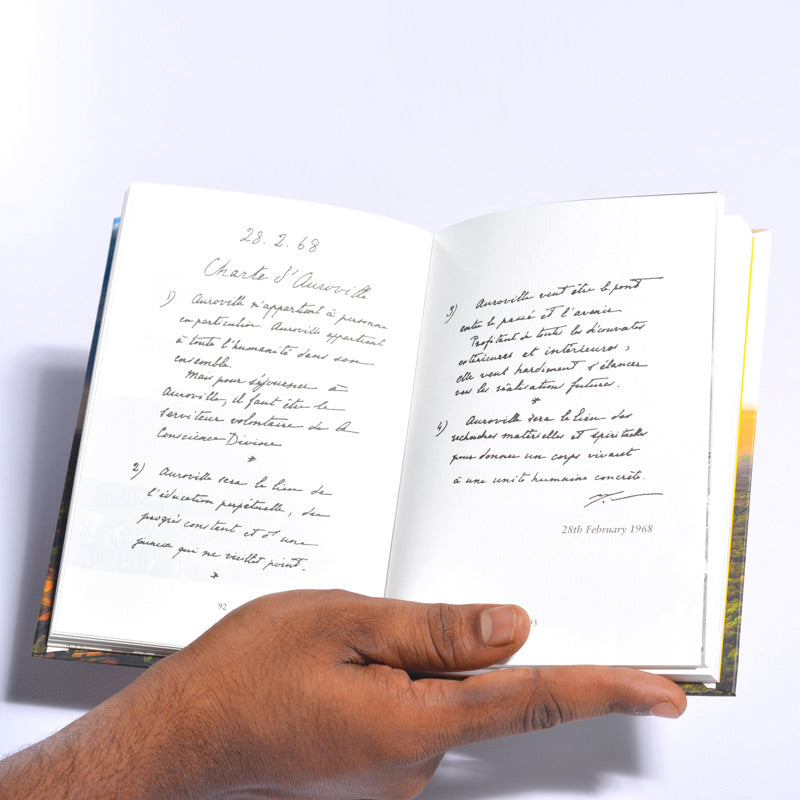 28. 2. 68
Charte d'Auroville
1) Auroville n'appartient à personne
en particulier. Auroville appartient
à toute l'humanité dans son
ensemble.
Mais pour séjourner à
Auroville, il faut être le
serviteur volontaire de la
Conscience Divine
*
2) Auroville sera le lieu de
l'éducation perpétuelle, du
progrès constant et d'une
jeunesse qui ne vieillit point.
*
92
3) Auroville veut être le pont
entre le passé et l'avenir
Profitant de toutes les découvertes
extérieures et intérieures,
elle veut hardiment s'élancer
vers les réalisations futures.
*
4) Auroville sera le lieu des
recherches matérielles et spirituelles
pour donner un corps vivant
à une unité humaine concrète.
28th February 1968
93